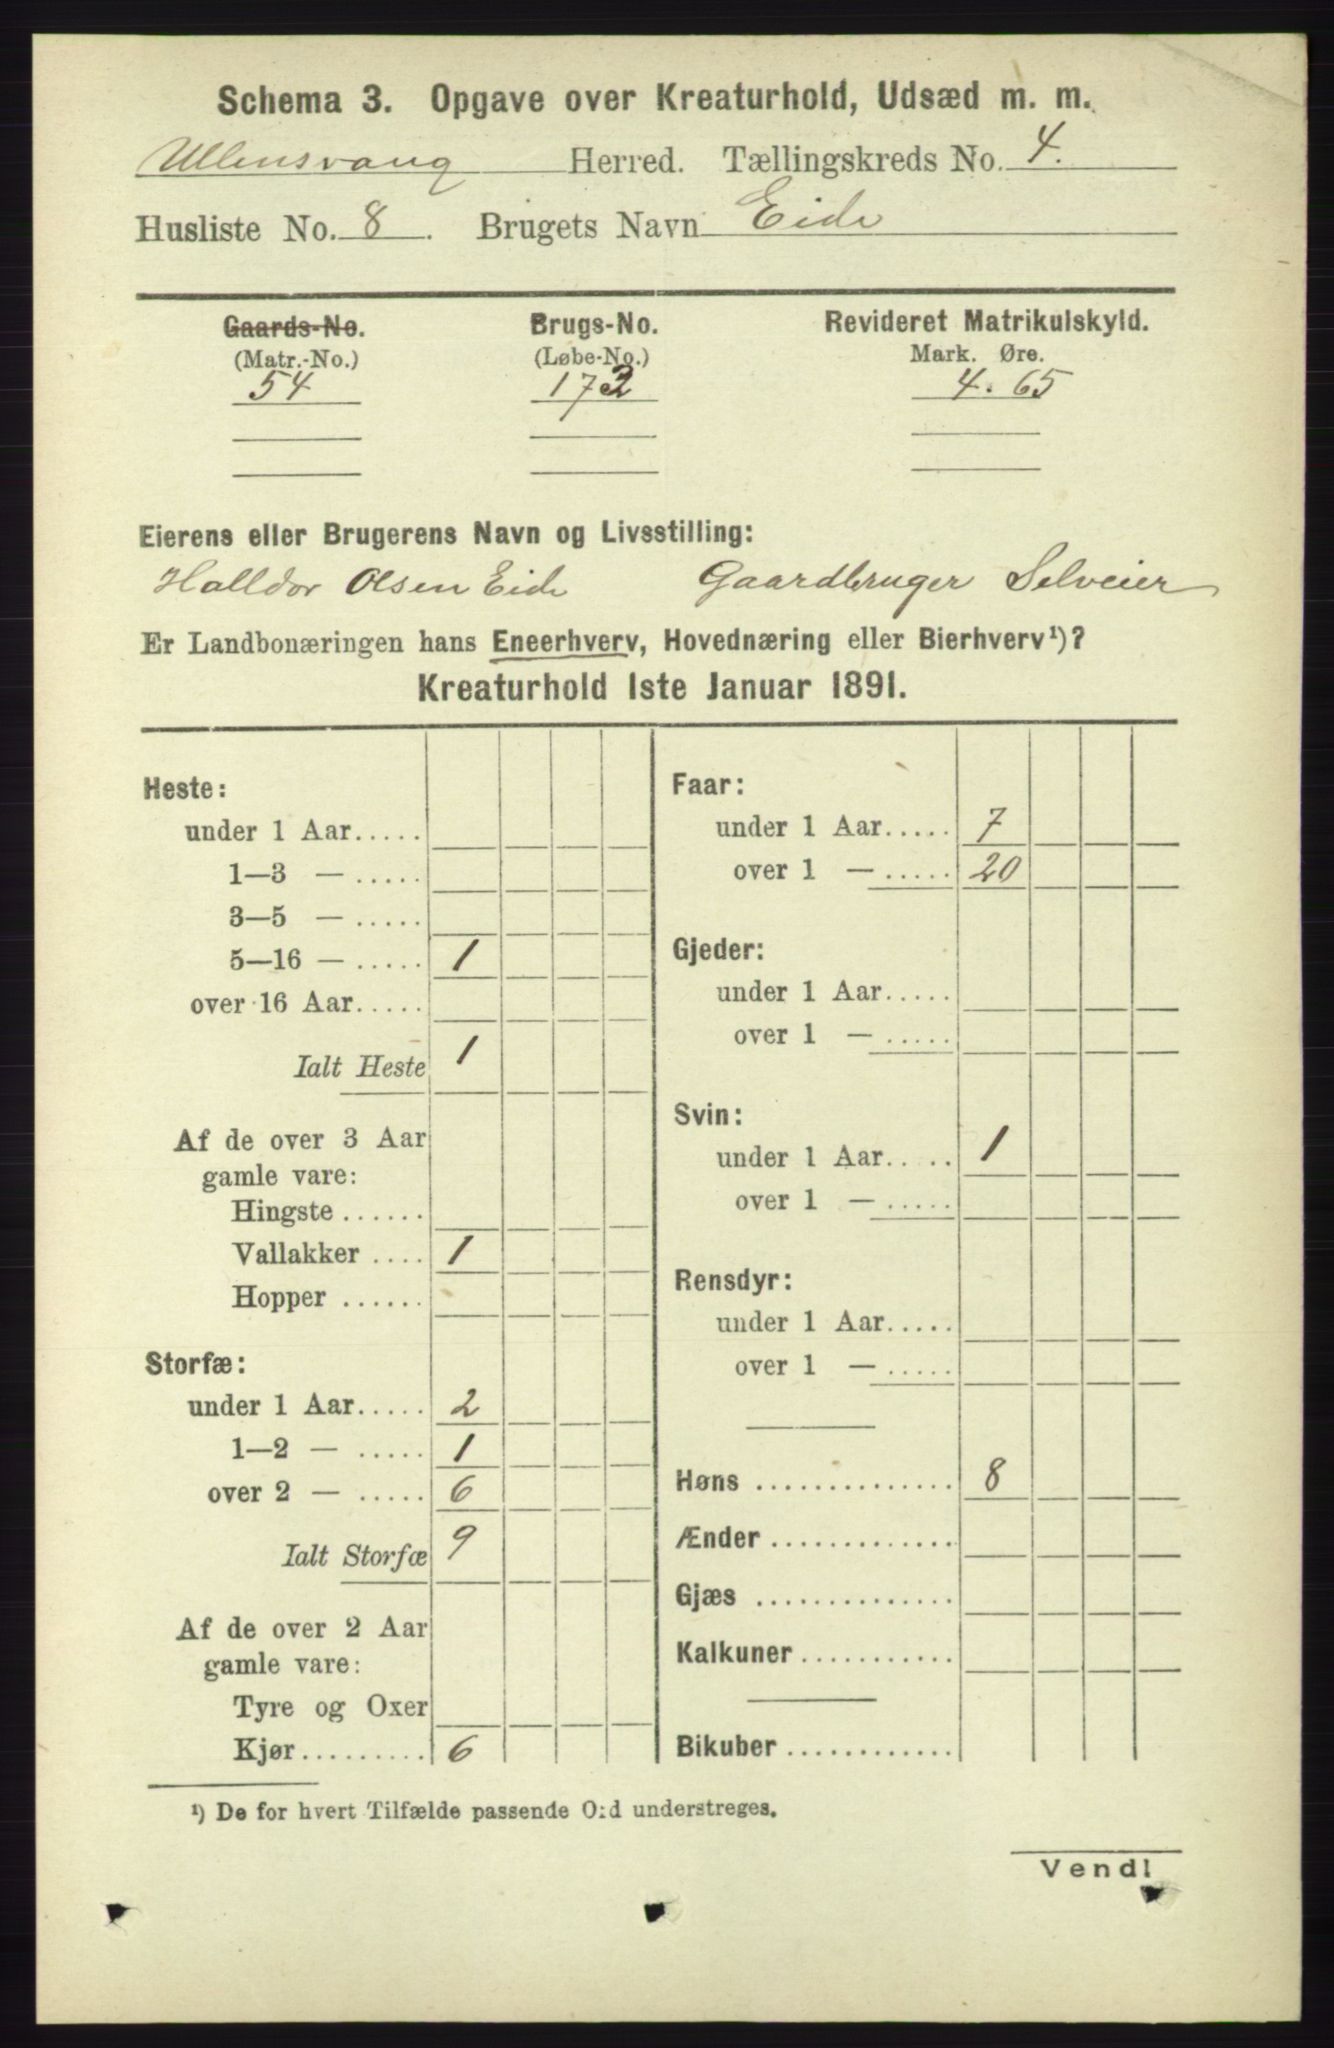 Schema 3. Opgave over Kreaturhold, Udsæd m. m.
Ullensvang Herred. Tællingskreds No. 4.
Husliste No. 8. Brugets Navn Eide
Gaards-No. Brugs-No. Revideret Matrikulskyld.
(Matr.-No.) (Løbe-No.) Mark. Øre.
54 172 4. 65
Eierens eller Brugerens Navn og Livsstilling:
Halldor Olsen Eide Gaardbruger Selveier
Er Landbonæringen hans Eneerhverv, Hovednæring eller Bierhverv¹)?
Kreaturhold 1ste Januar 1891.
Heste:
under 1 Aar.....
1—3 — .....
3—5 — .....
5—16 — ..... 1
over 16 Aar.....
Ialt Heste 1
Af de over 3 Aar
gamle vare:
Hingste ......
Vallakker .... 1
Hopper ......
Storfæ:
under 1 Aar..... 2
1—2 — ..... 1
over 2 — ..... 6
Ialt Storfæ 9
Af de over 2 Aar
gamle vare:
Tyre og Oxer
Kjør......... 6
Faar:
under 1 Aar..... 7
over 1 — ..... 20
Gjeder:
under 1 Aar.....
over 1 — .....
Svin:
under 1 Aar..... 1
over 1 — .....
Rensdyr:
under 1 Aar.....
over 1 — .....
Høns .............. 8
Ænder .............
Gjæs ..............
Kalkuner ...........
Bikuber ............
¹) De for hvert Tilfælde passende Ord understreges.
Vend!